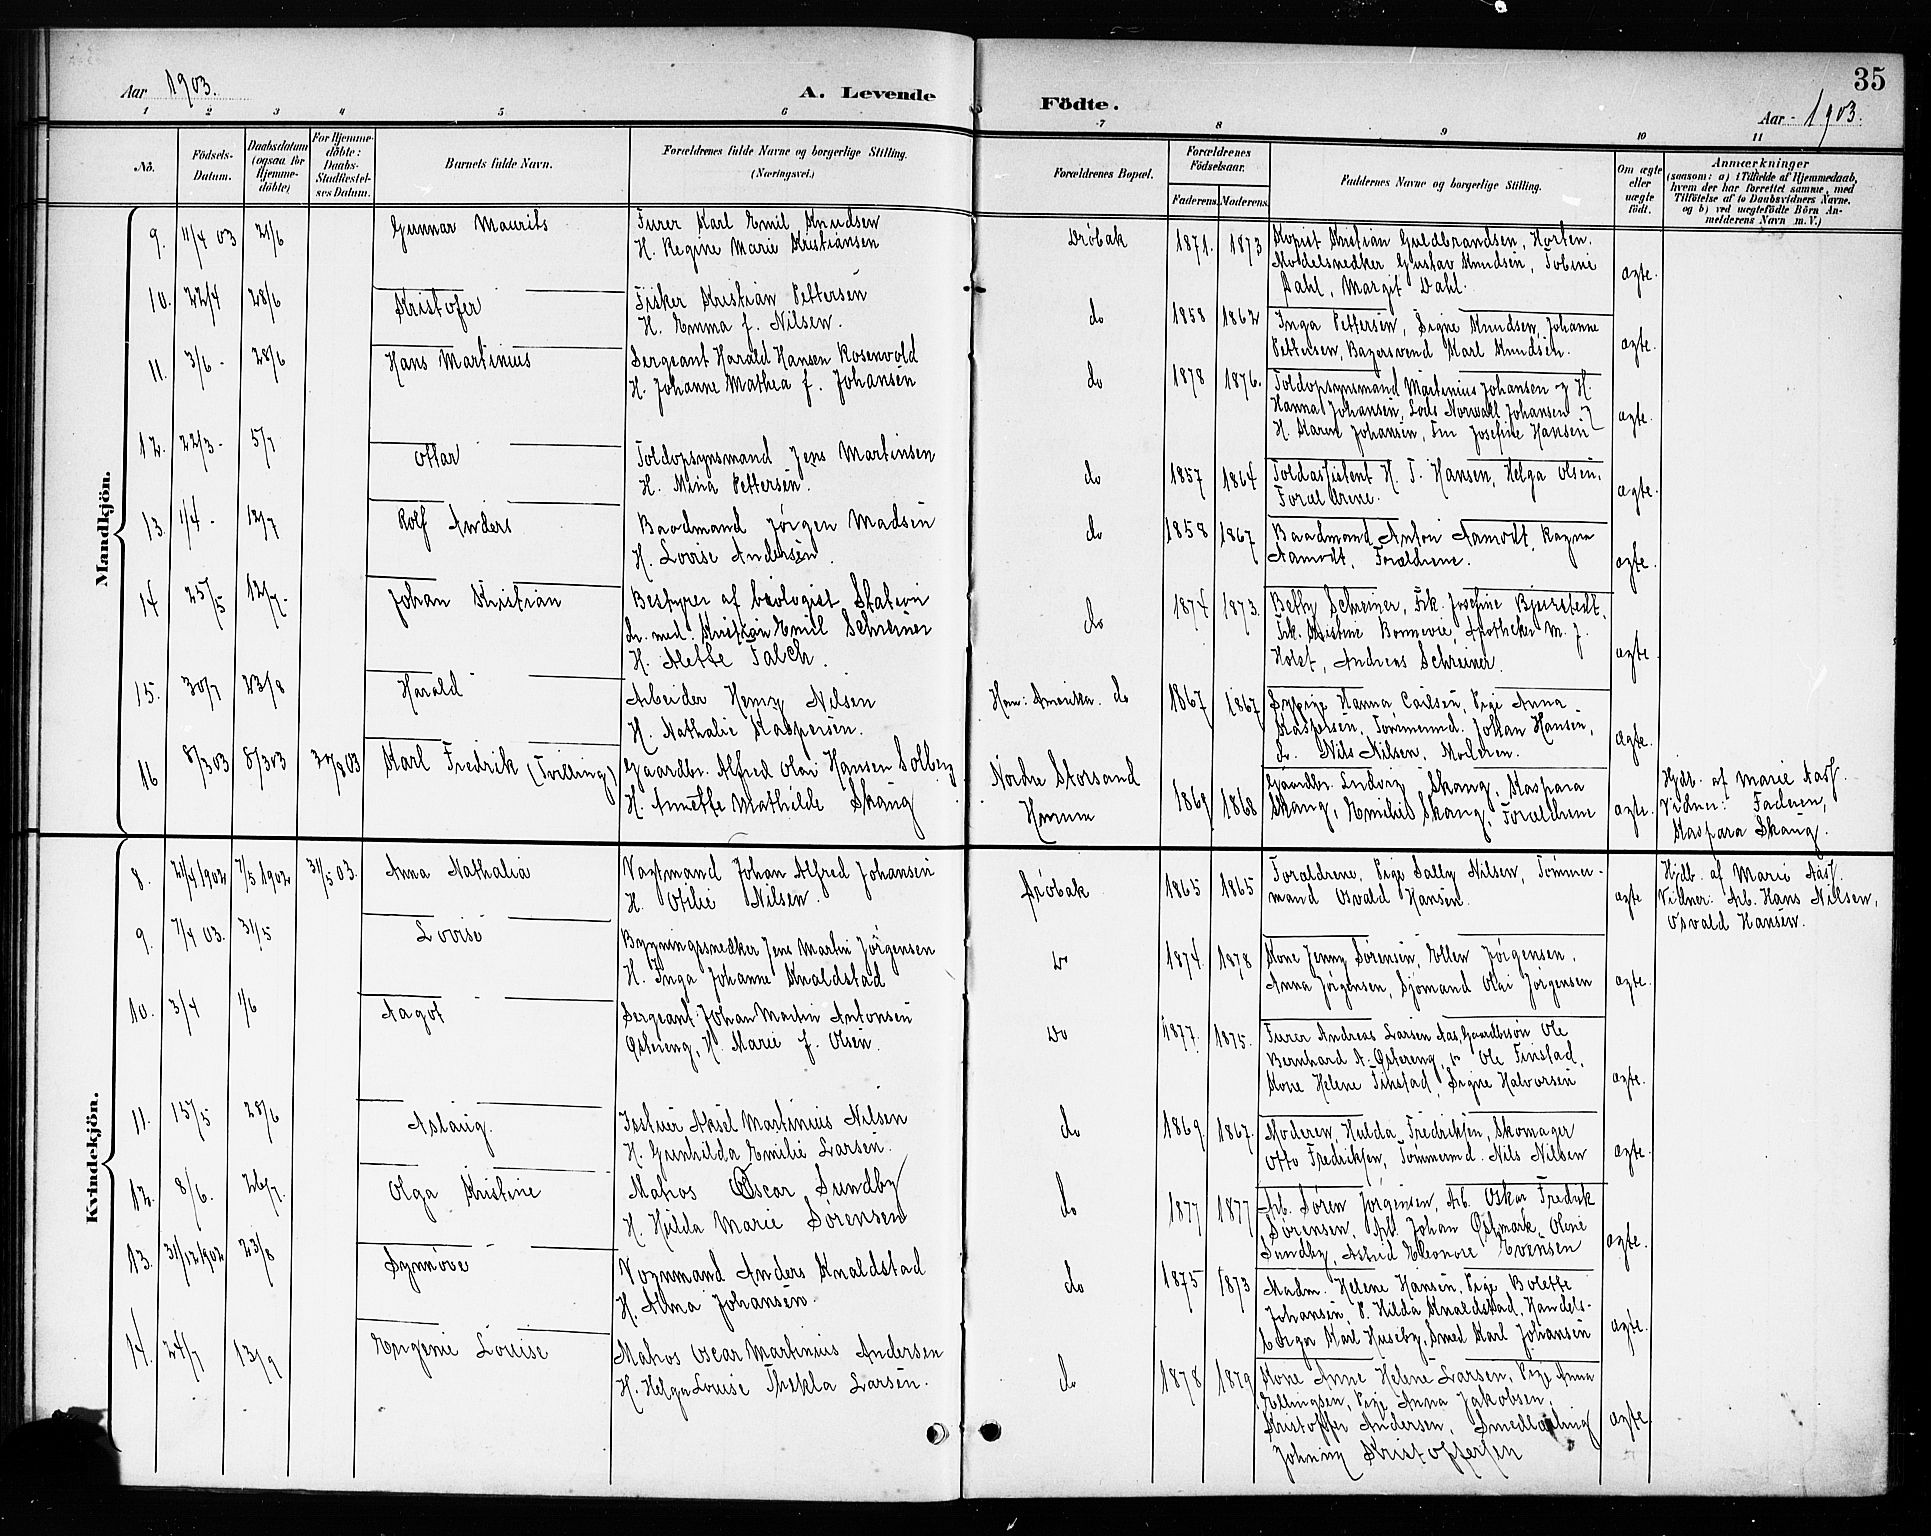 35
Aar 1903.
A. Levende
Födte.
Aar 1903.
1 2 3 4 5 6 7 8 9 10 11
No.
Födsels-Datum.
Daabsdatum (ogsaa for Hjemme-döbte)
For Hjemme-döbte: Daabs-Stadfæstel-ses Datum.
Barnets fulde Navn.
Forældrenes fulde Navne og borgerlige Stilling.
(Næringsvei.)
Forældrenes Bopæl.
Forældrenes Födselsaar.
Faderens. Moderens.
Faddernes Navne og borgerlige Stilling.
Om ægte eller uægte födt.
Anmærkninger
(saasom: a) i Tilfælde af Hjemmedaab,
hvem der har forrettet samme, med
Tilföielse af to Daabsvidners Navne,
og b) ved uægtefödte Börn An-
melderens Navn m. V.)
Mandkjön.
9. 11/4 03 21/6 Gunnar Maurits
Furer Karl Emil Knudsen
H. Regine Marie Kristiansen
Drøbak 1871. 1873
Kopist Kristian Guldbrandsen, Horten.
Modelsnedker Gustav Knudsen, Tobine
Dahl, Margit Dahl.
ægte.
10. 22/4 28/6 Kristofer
Fisker Kristian Pettersen
H. Emma f. Nilsen.
do 1858 1862
Inga Pettersen, Signe Knudsen, Johanne
Pettersen, Bagersvend Karl Knudsen.
ægte.
11. 3/6 - 28/6 Hans Martinius
Sergeant Harald Hansen Rosenvold
H. Johanne Mathea f. Johansen
do 1878 1876.
Toldopsynsmand Martinius Johansen og H.
Hanna Johansen, Lods Norwall Johansen
H. Karen Johansen, Fru Josefine Hansen
ægte.
12. 22/3 - 5/7 Ottar
Toldopsynsmand Jens Martinsen
H. Mina Pettersen.
do 1857 1864
Toldassistent H. T. Hansen, Helga Olsen,
Forældrene.
ægte.
13. 1/4 - 12/7 Rolf Anders
Baadmand Jørgen Madsen
H. Lovise Andersen.
do 1858 1867
Baadmand Anton Aamodt, Ragna
Aamodt, Forældrene.
ægte.
14 25/5 12/7 - Johan Kristian
Bestyrer af biologist Station
Dr. med. Kristian Emil Schreiner
H. Alette Falch.
do 1874 1873.
Betty Schreiner, Frk. Josefine Bjerstedt,
Frk. Kristine Bonnevie, Apotheker M. J.
Holst, Andreas Schreiner.
ægte.
15. 30/7 23/8 Harald
Arbeider Henry Nilsen
H. Nathalie Kaspersen.
Han: Amerika. do 1867 1867
Sypige Hanna Carlsen, Pige Anna
Kaspersen, Tømmermd. Johan Hansen,
do. Nils Nilsen, Moderen.
ægte.
16 8/3 03 8/3 03 30/8 03 Karl Fredrik (Tvilling)
Gaardbr. Alfred Olai Hansen Solberg
H. Annette Mathilde Skaug
Nordre Storsand
Hurum
1869 1868
Gaardbr. Ludvig Skaug, Kaspara
Skaug, Emilie Skaug, Forældrene
ægte.
Hjdb. af Marie Aas
Vidner: Faderen,
Kaspara Skaug.
Kvindekjön.
8. 21/4 1902 7/5 1902 31/5 03. Anna Nathalia
Vagtmand Johan Alfred Johansen
H. Otilie Nilsen.
Drøbak 1865 1865
Forældrene, Pige Sally Nilsen, Tømmer-
mand Osvald Hansen.
ægte
Hjdb. af Marie Aas
Vidner: Arb. Hans Nilsen,
Osvald Hansen.
9. 7/4 03. 31/5 Lovise
Bygningssnedker Jens Martin Jørgensen
H. Inga Johanne Knaldstad
do 1874. 1878
Kone Jenny Sørensen, Ellen Jørgensen,
Anna Jørgensen, Sjømand Olai Jørgensen
ægte.
10. 3/4 1/6 Aagot
Sergeant Johan Martin Antonsen
Østereng, H. Marie f. Olsen.
do 1877. 1875.
Furer Andreas Larsen Aas, Gaardbrsøn Ole
Bernhard A. Østereng, do Ole Finstad,
Kone Helene Finstad, Signe Halvorsen
ægte.
11. 15/5 28/6 Aslaug.
Istuer Aksel Martinius Nilsen
H. Gunhilda Emilie Larsen.
do 1869. 1867.
Moderen, Hulda Fredriksen, Skomager
Otto Fredriksen, Tømmermd. Nils Nilsen
ægte.
12. 8/6. 26/7. Olga Kristine
Matros Oscar Sundby
H. Hilda Marie Sørensen
do 1877 1877
Arb. Søren Jørgensen, Arb. Oskar Fredrik
Sørensen, Arb. Johan Østmark, Oline
Sundby, Astrid Eleonore Evensen
ægte.
13. 31/12 1902 23/8 Synnøve
Vognmand Anders Knaldstad
H. Alma Johansen.
do 1875 1873
Madm. Helene Hansen, Pige Bolette
Johansen, P. Hilda Knaldstad, Handels-
borger Karl Huseby, Smed Karl Johansen
ægte.
14. 24/7 13/9 Eugenie Louise
Matros Oscar Martinius Andersen
H. Helga Louise Thekla Larsen.
do 1878 1879
Kone Anne Helene Larsen, Pige Anna
Ellingsen, Pige Anna Jakobsen,
Kristoffer Andersen, Smedlærling
Johnny Kristoffersen
ægte.